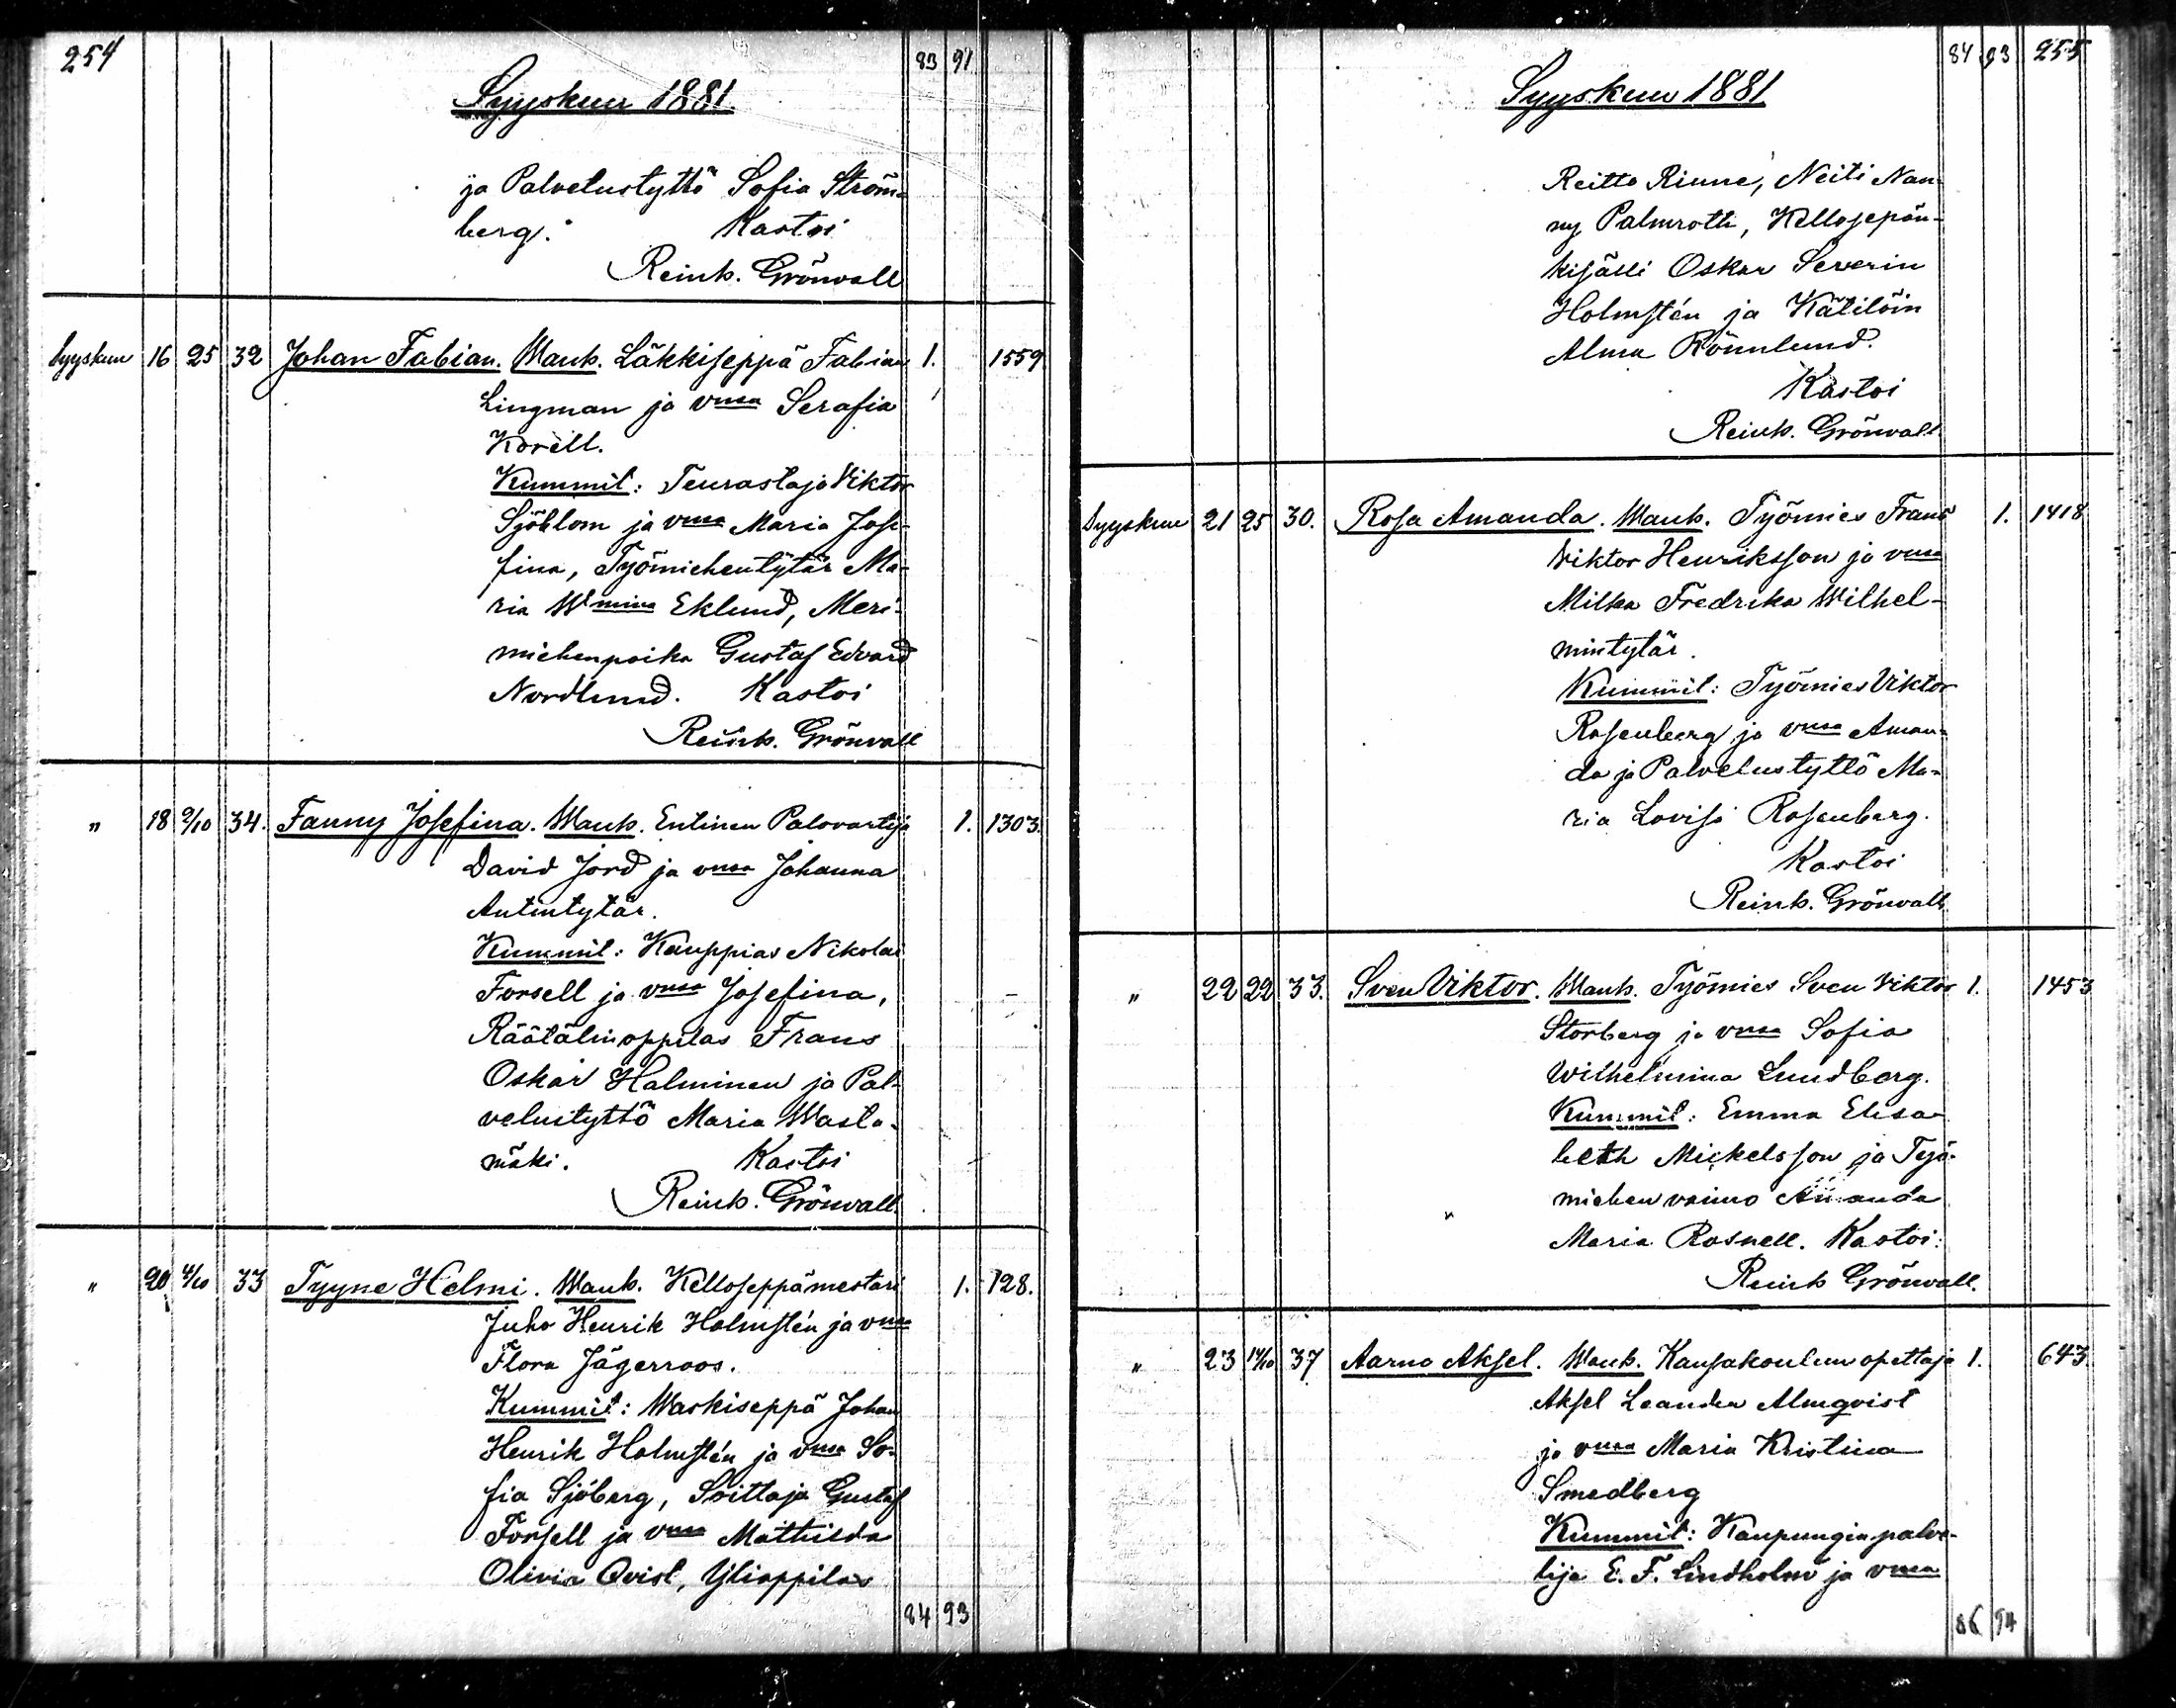 254
83 91
Syyskuu 1881.
ja Palvelustyttö Sofia Ström-
berg. Kastoi
Reinh. Grönvall
Syyskuu 16 25 32 Johan Fabian. Wanh. Läkkiseppä Fabian 1. 1559
Lingman ja vmsa Serafia
Korell.
Kummit: Teurastaja Viktor
Sjöblom ja vmsa Maria Jose-
fina, Työmiehentytär Ma-
ria Wmina Eklund, Meri-
miehenpoika Gustaf Edvard
Nordlund. Kastoi
Reinh. Grönvall
" 18 2/10 34. Fanny Josefina. Wanh. Entinen Palovartija 1. 1303.
David Jord ja vmsa Johanna
Antintytär.
Kummit: Kauppias Nikolai
Forsell ja vmsa Josefina,
Räätälinoppilas Frans
Oskar Halminen ja Pal-
velustyttö Maria Wasta-
mäki. Kastoi
Reinh. Grönvall.
" 20 4/10 33 Tyyne Helmi. Wanh. Kelloseppämestari 1. 128.
Juho Henrik Holmstén ja vmsa
Flora Jägerroos.
Kummit: Waskiseppä Johan
Henrik Holmstén ja vmsa So-
fia Sjöberg, Soittaja Gustaf
Forsell ja vmsa Mathilda
Olivia Qvist, Ylioppilas
84 93
84 93 255
Syyskuu 1881
Reitto Rinne, Neiti Nan-
ny Palmroth, Kellosepän-
kisälli Oskar Severin
Holmstén ja Kätilöin
Alma Rönnlund.
Kastoi
Reinh. Grönvall.
Syyskuu 21 25 30. Rosa Amanda. Wanh. Työmies Frans 1. 1418
Viktor Henriksson ja vmsa
Milka Fredrika Wilhel-
mintytär.
Kummit: Työmies Viktor
Rosenberg ja vmsa Aman-
da ja Palvelustyttö Ma-
ria Lovisa Rosenberg.
Kastoi
Reinh. Grönvall.
" 22 22 33. Sven Viktor. Wanh. Työmies Sven Viktor 1. 1453
Storberg ja vmsa Sofia
Wilhelmina Lundberg.
Kummit: Emma Elisa-
beth Mickelsson ja Työ-
miehen vaimo Amanda
Maria Rosnell. Kastoi:
Reinh Grönvall.
" 23 14/10 37 Aarno Aksel. Wanh. Kansakoulun opettaja 1. 643.
Aksel Leander Almqvist
ja vmsa Maria Kristina
Smedberg
Kummit: Kaupungin palve-
lija E. F. Lindholm ja vmsa
86 94